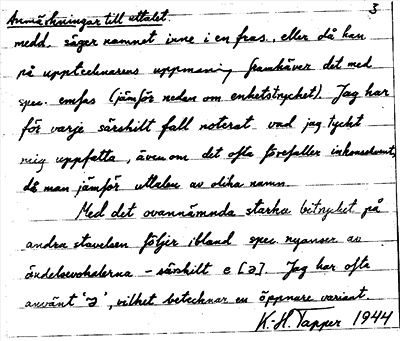 Anmärkningar till uttalet. 3
medd. säger namnet inne i en fras. eller då han
på upptecknarens uppmaning framhäver det med
spec. emfas (jämför nedan om enhetstrycket). Jag har
för varje särskilt fall noterat vad jag tyckt
mig uppfatta, även om det ofta förefaller inkonsekvent,
då man jämför uttalen av olika namn.
Med det ovannämnda starka bitrycket på
andra stavelsen följer ibland spec. nyanser av
ändelsevokalerna – särskilt e [ə]. Jag har ofta
använt 'ə', vilket betecknar en öppnare variant.
K.-H. Tapper 1944